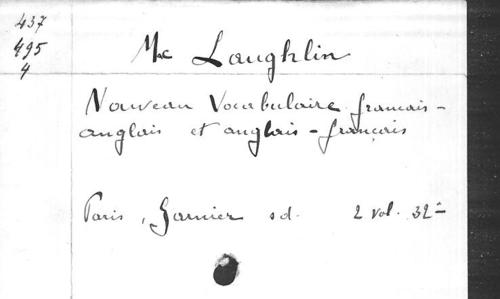 437
495
4
Mc Laughlin
Nouveau Vocabulaire français-
anglais et anglais-français
Paris, Garnier sd. 2 vol. 32-